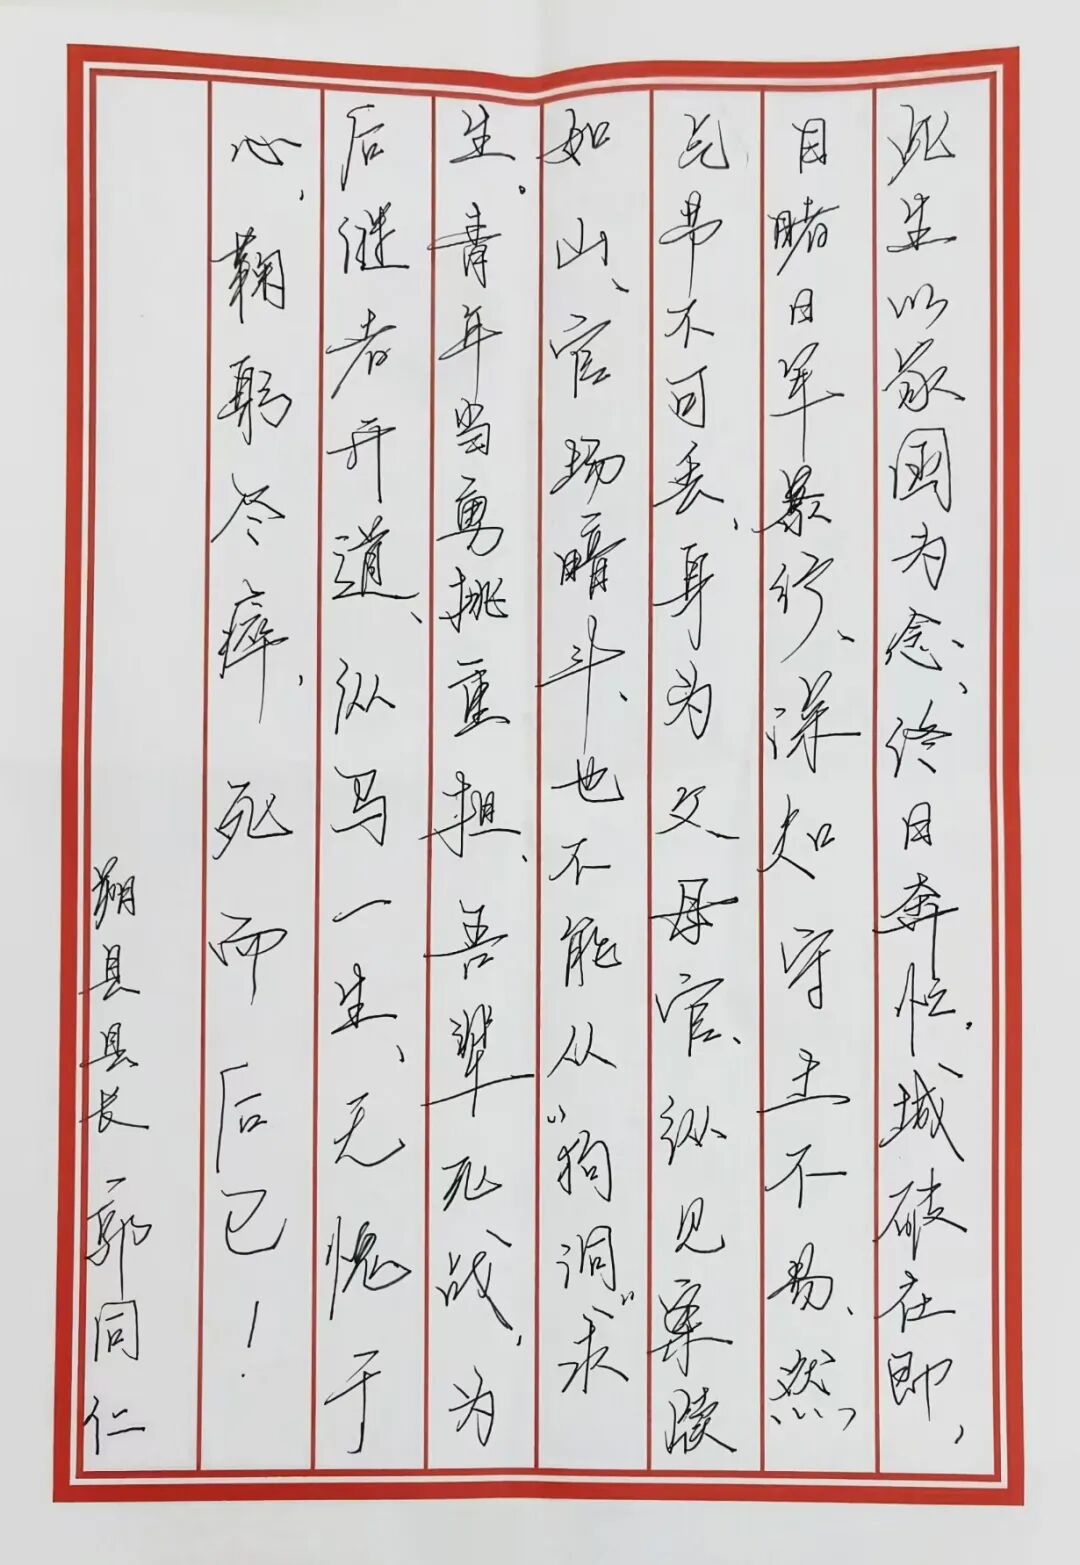 此生以家国为念、终日奔忙。城破在即，
目睹日军暴行、深知守土不易、然
气节不可丢、身为父母官、纵见案牍
如山、官场暗斗、也不能从“狗洞”求
生。青年当勇挑重担、吾辈死战，为
后继者开道、纵马一生、无愧于
心，鞠躬尽瘁，死而后已！
朔县县长 郭同仁